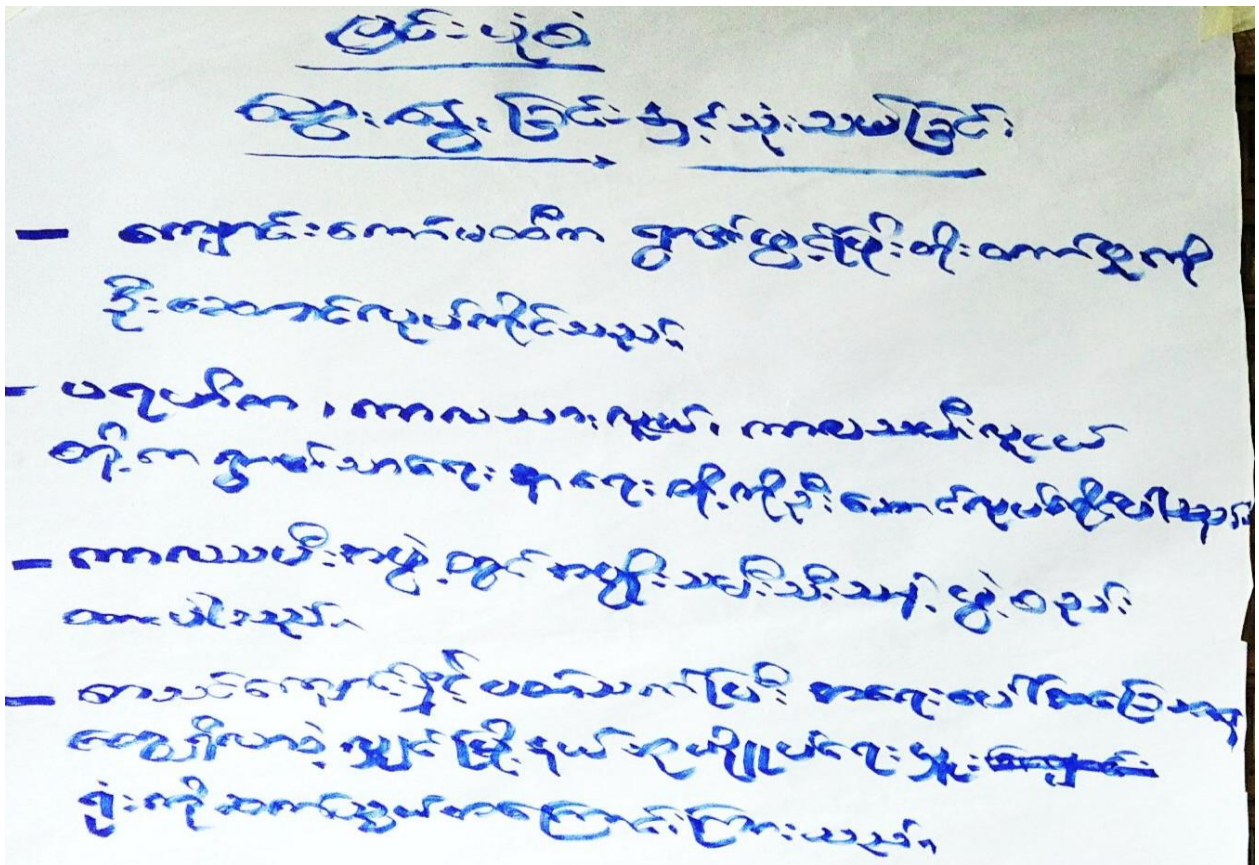 မြင်းပုံစံ
ဆွေးနွေးခြင်းနှင့်သုံးသပ်ခြင်း
- ကျောင်းကော်မတီက ရွာဖွံ့ဖြိုးတိုးတက်မှုကို
ဦးဆောင်လုပ်ကိုင်သည်
- ပရဟိတ၊ ကာလသားလူငယ်၊ ကာလသမီးလူငယ်
တို့က ရွာ၏သာရေး နာရေး တို့ကိုဦးဆောင်လုပ်ကိုင်ပါသည်။
- ကာလသမီးအဖွဲ့တွင် အမျိုးသမီးသီးသန့် ဖွဲ့စည်း
ထားပါသည်။
- စာသင်ကျောင်းနှင့်ပတ်သက်ပြီး အရေးပေါ်အခြေအနေ
တွေ့ရှိလာခဲ့လျှင် မြို့နယ်အုပ်ချုပ်ရေးမှူး
ရုံးကိုဆက်သွယ်အကြောင်းကြားသည်။